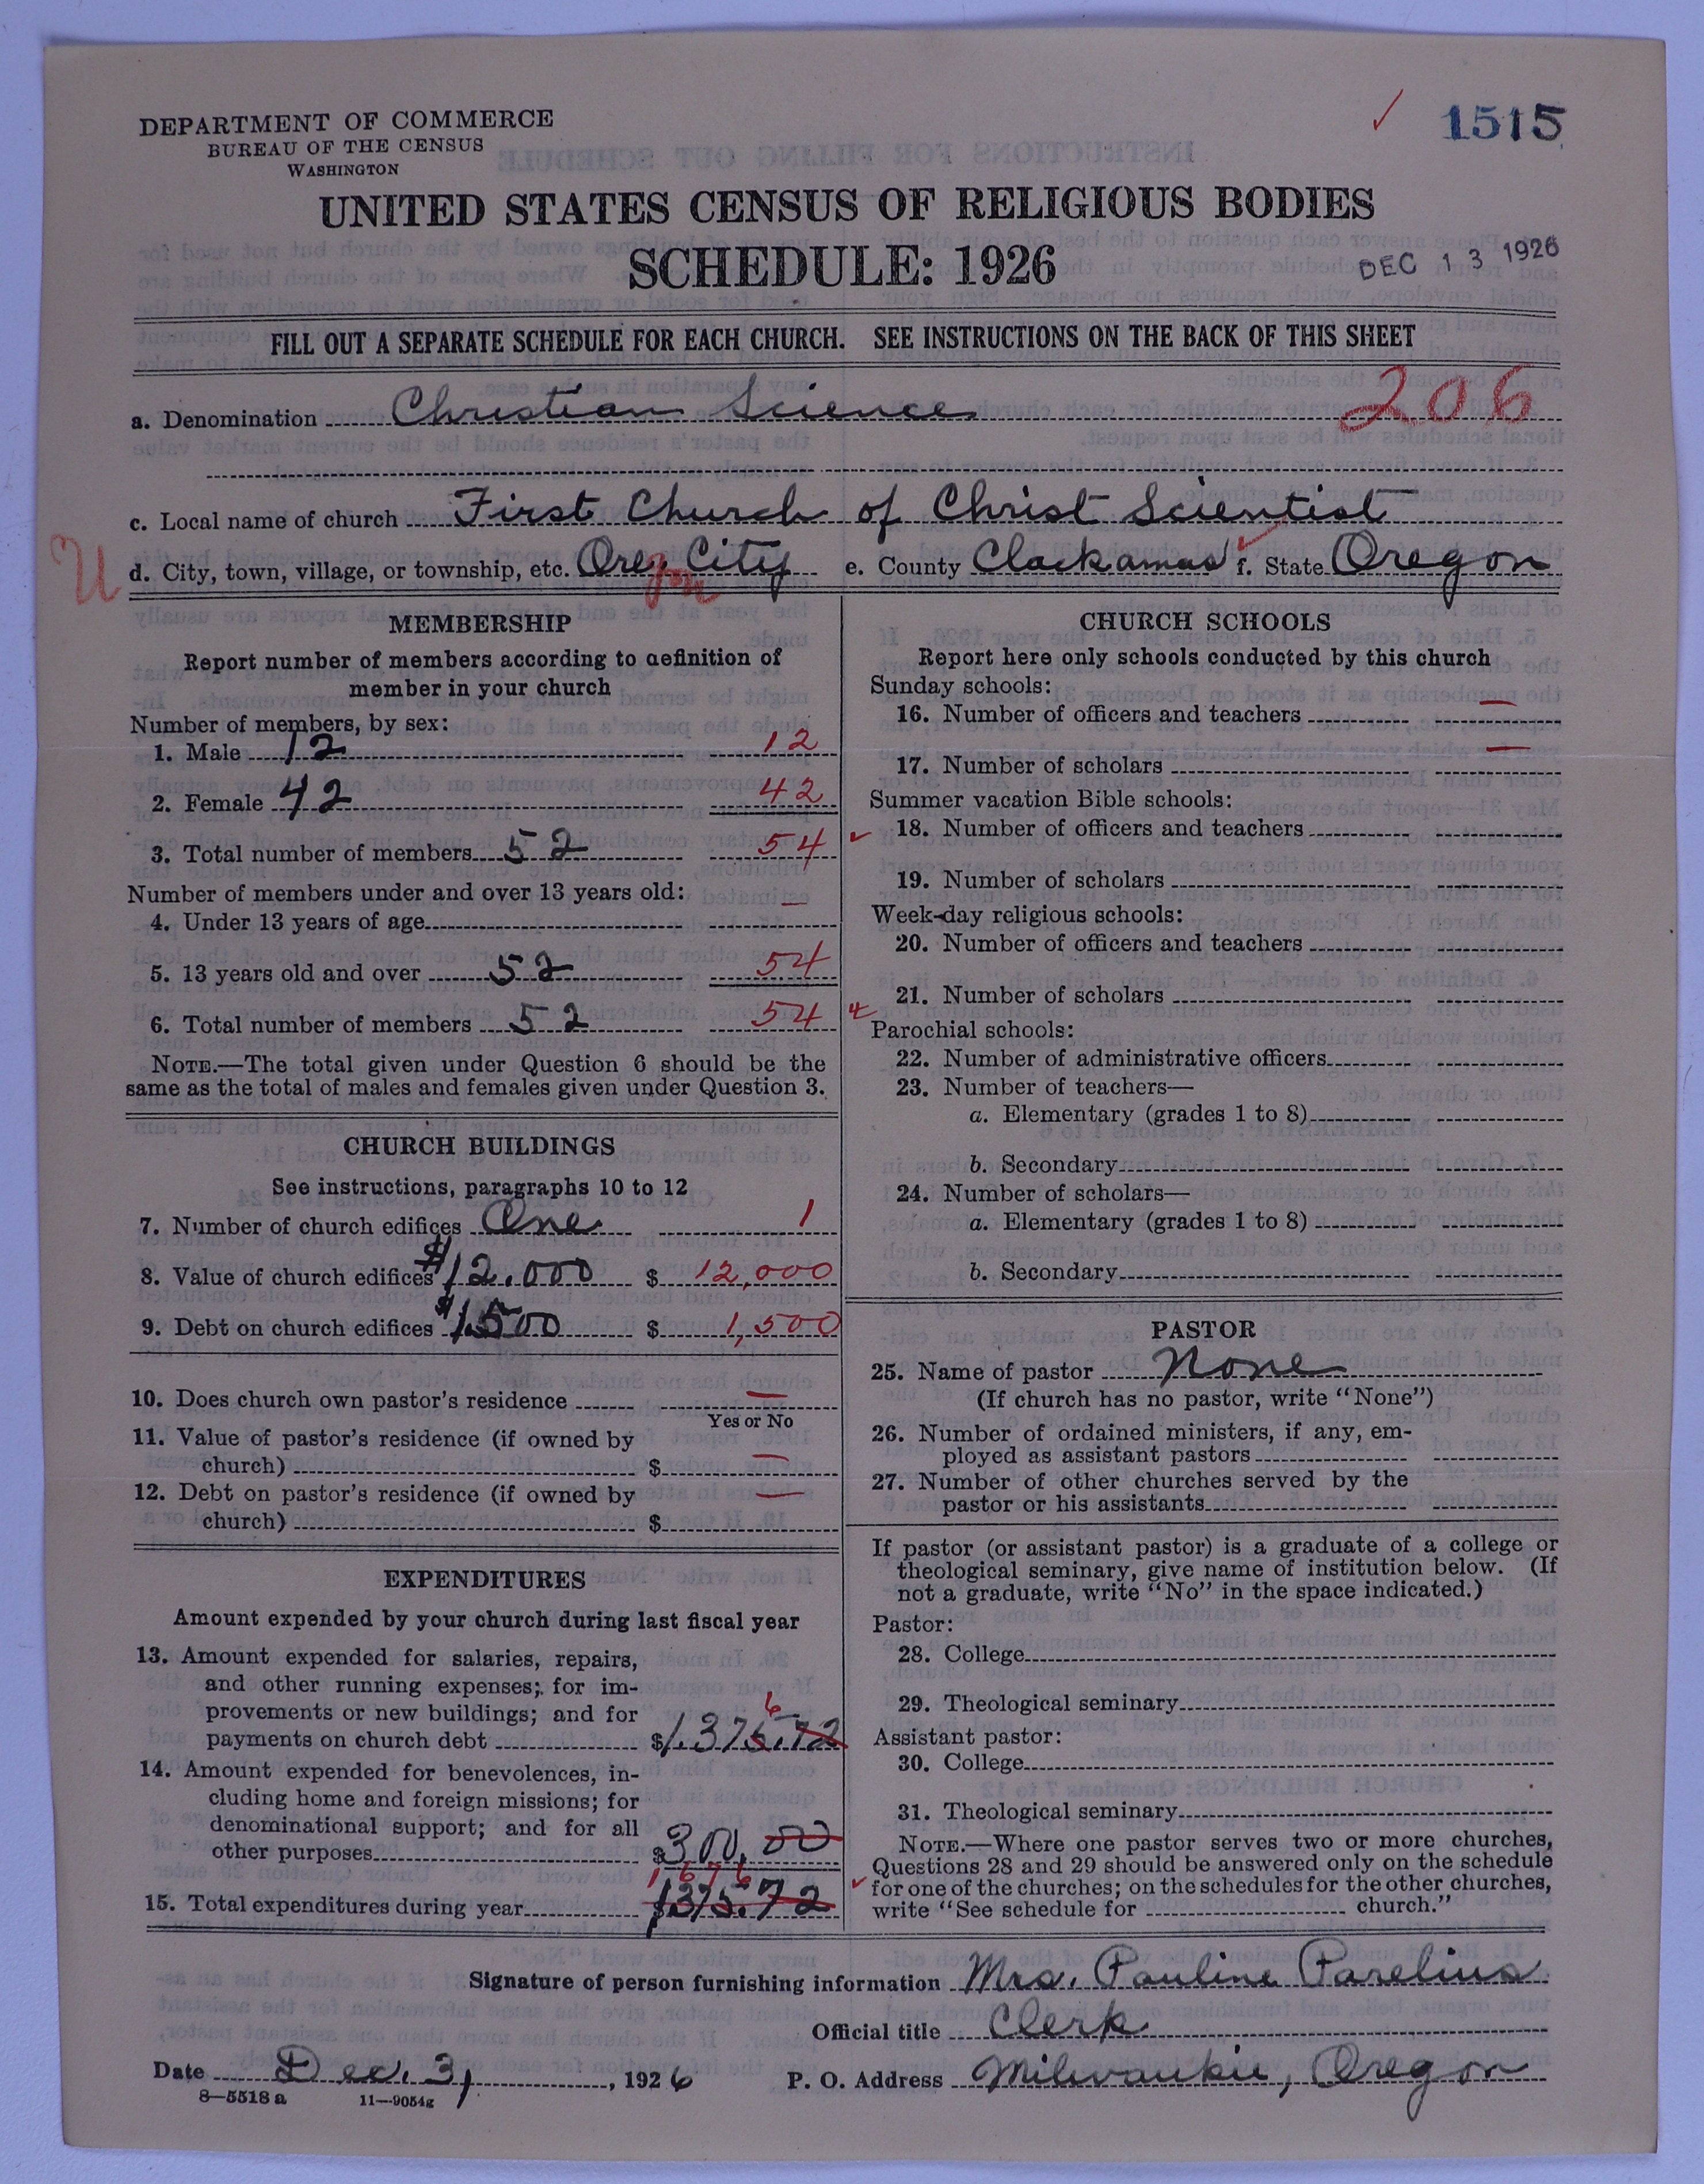 DEPARTMENT OF COMMERCE
BUREAU OF THE CENSUS
WASHINGTON
1515
UNITED STATES CENSUS OF RELIGIOUS BODIES
SCHEDULE: 1926
DEC 13 1926
FILL OUT A SEPARATE SCHEDULE FOR EACH CHURCH. SEE INSTRUCTIONS ON THE BACK OF THIS SHEET
a. Denomination Christian Science 206
c. Local name of church First Church of Christ Scientist
U d. City, town, village, or township, etc. Ore. City e. County Clackamas f. State Oregon
gon
MEMBERSHIP
Report number of members according to definition of
member in your church
Number of members, by sex:
1. Male 12 12
2. Female 42 42
3. Total number of members 52 54
Number of members under and over 13 years old:
4. Under 13 years of age —
5. 13 years old and over 52 54
6. Total number of members 52 54
NOTE.—The total given under Question 6 should be the
same as the total of males and females given under Question 3.
CHURCH BUILDINGS
See instructions, paragraphs 10 to 12
7. Number of church edifices One 1
8. Value of church edifices $12.000 $ 12,000
9. Debt on church edifices $1500 $ 1,500
10. Does church own pastor's residence —
Yes or No
11. Value of pastor's residence (if owned by
church) $ —
12. Debt on pastor's residence (if owned by
church) $ —
EXPENDITURES
Amount expended by your church during last fiscal year
13. Amount expended for salaries, repairs,
and other running expenses; for im-
provements or new buildings; and for
6
payments on church debt $1.375.72
14. Amount expended for benevolences, in-
cluding home and foreign missions; for
denominational support; and for all
other purposes $300.00
1676
15. Total expenditures during year $1375.72
CHURCH SCHOOLS
Report here only schools conducted by this church
Sunday schools:
16. Number of officers and teachers —
17. Number of scholars —
Summer vacation Bible schools:
18. Number of officers and teachers
19. Number of scholars
Week-day religious schools:
20. Number of officers and teachers
21. Number of scholars
Parochial schools:
22. Number of administrative officers
23. Number of teachers—
a. Elementary (grades 1 to 8)
b. Secondary
24. Number of scholars—
a. Elementary (grades 1 to 8)
b. Secondary
PASTOR
25. Name of pastor None
(If church has no pastor, write "None")
26. Number of ordained ministers, if any, em-
ployed as assistant pastors
27. Number of other churches served by the
pastor or his assistants
If pastor (or assistant pastor) is a graduate of a college or
theological seminary, give name of institution below. (If
not a graduate, write "No" in the space indicated.)
Pastor:
28. College
29. Theological seminary
Assistant pastor:
30. College
31. Theological seminary
NOTE.—Where one pastor serves two or more churches,
Questions 28 and 29 should be answered only on the schedule
for one of the churches; on the schedules for the other churches,
write "See schedule for church."
Signature of person furnishing information Mrs. Pauline Parelius
Official title Clerk
Date Dec. 3, 1926 P. O. Address Milwaukie, Oregon
8—5518 a 11—9054g